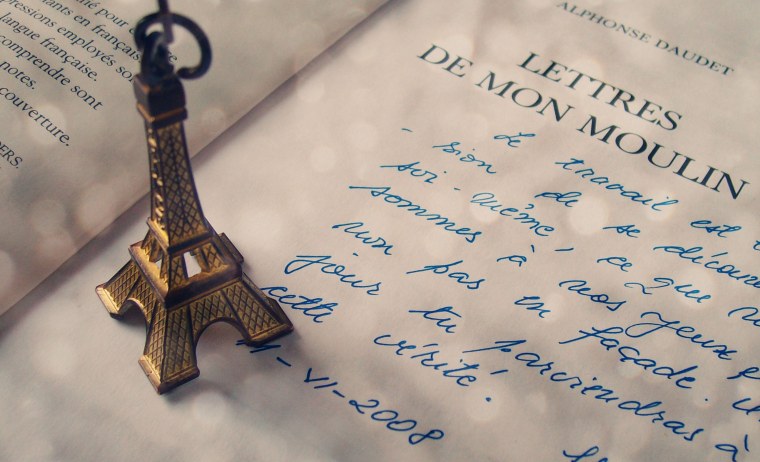 pour
ants en français
pressions employés so
langue française.
comprendre sont
notes.
couverture.
DERS.
ALPHONSE DAUDET
LETTRES
DE MON MOULIN
Le travail est
- sion de se découv
soi-même, ce que n
sommes à nos yeux e
non pas en façade. U
jour tu parviendras à
cette vérité.
11-VI-2008